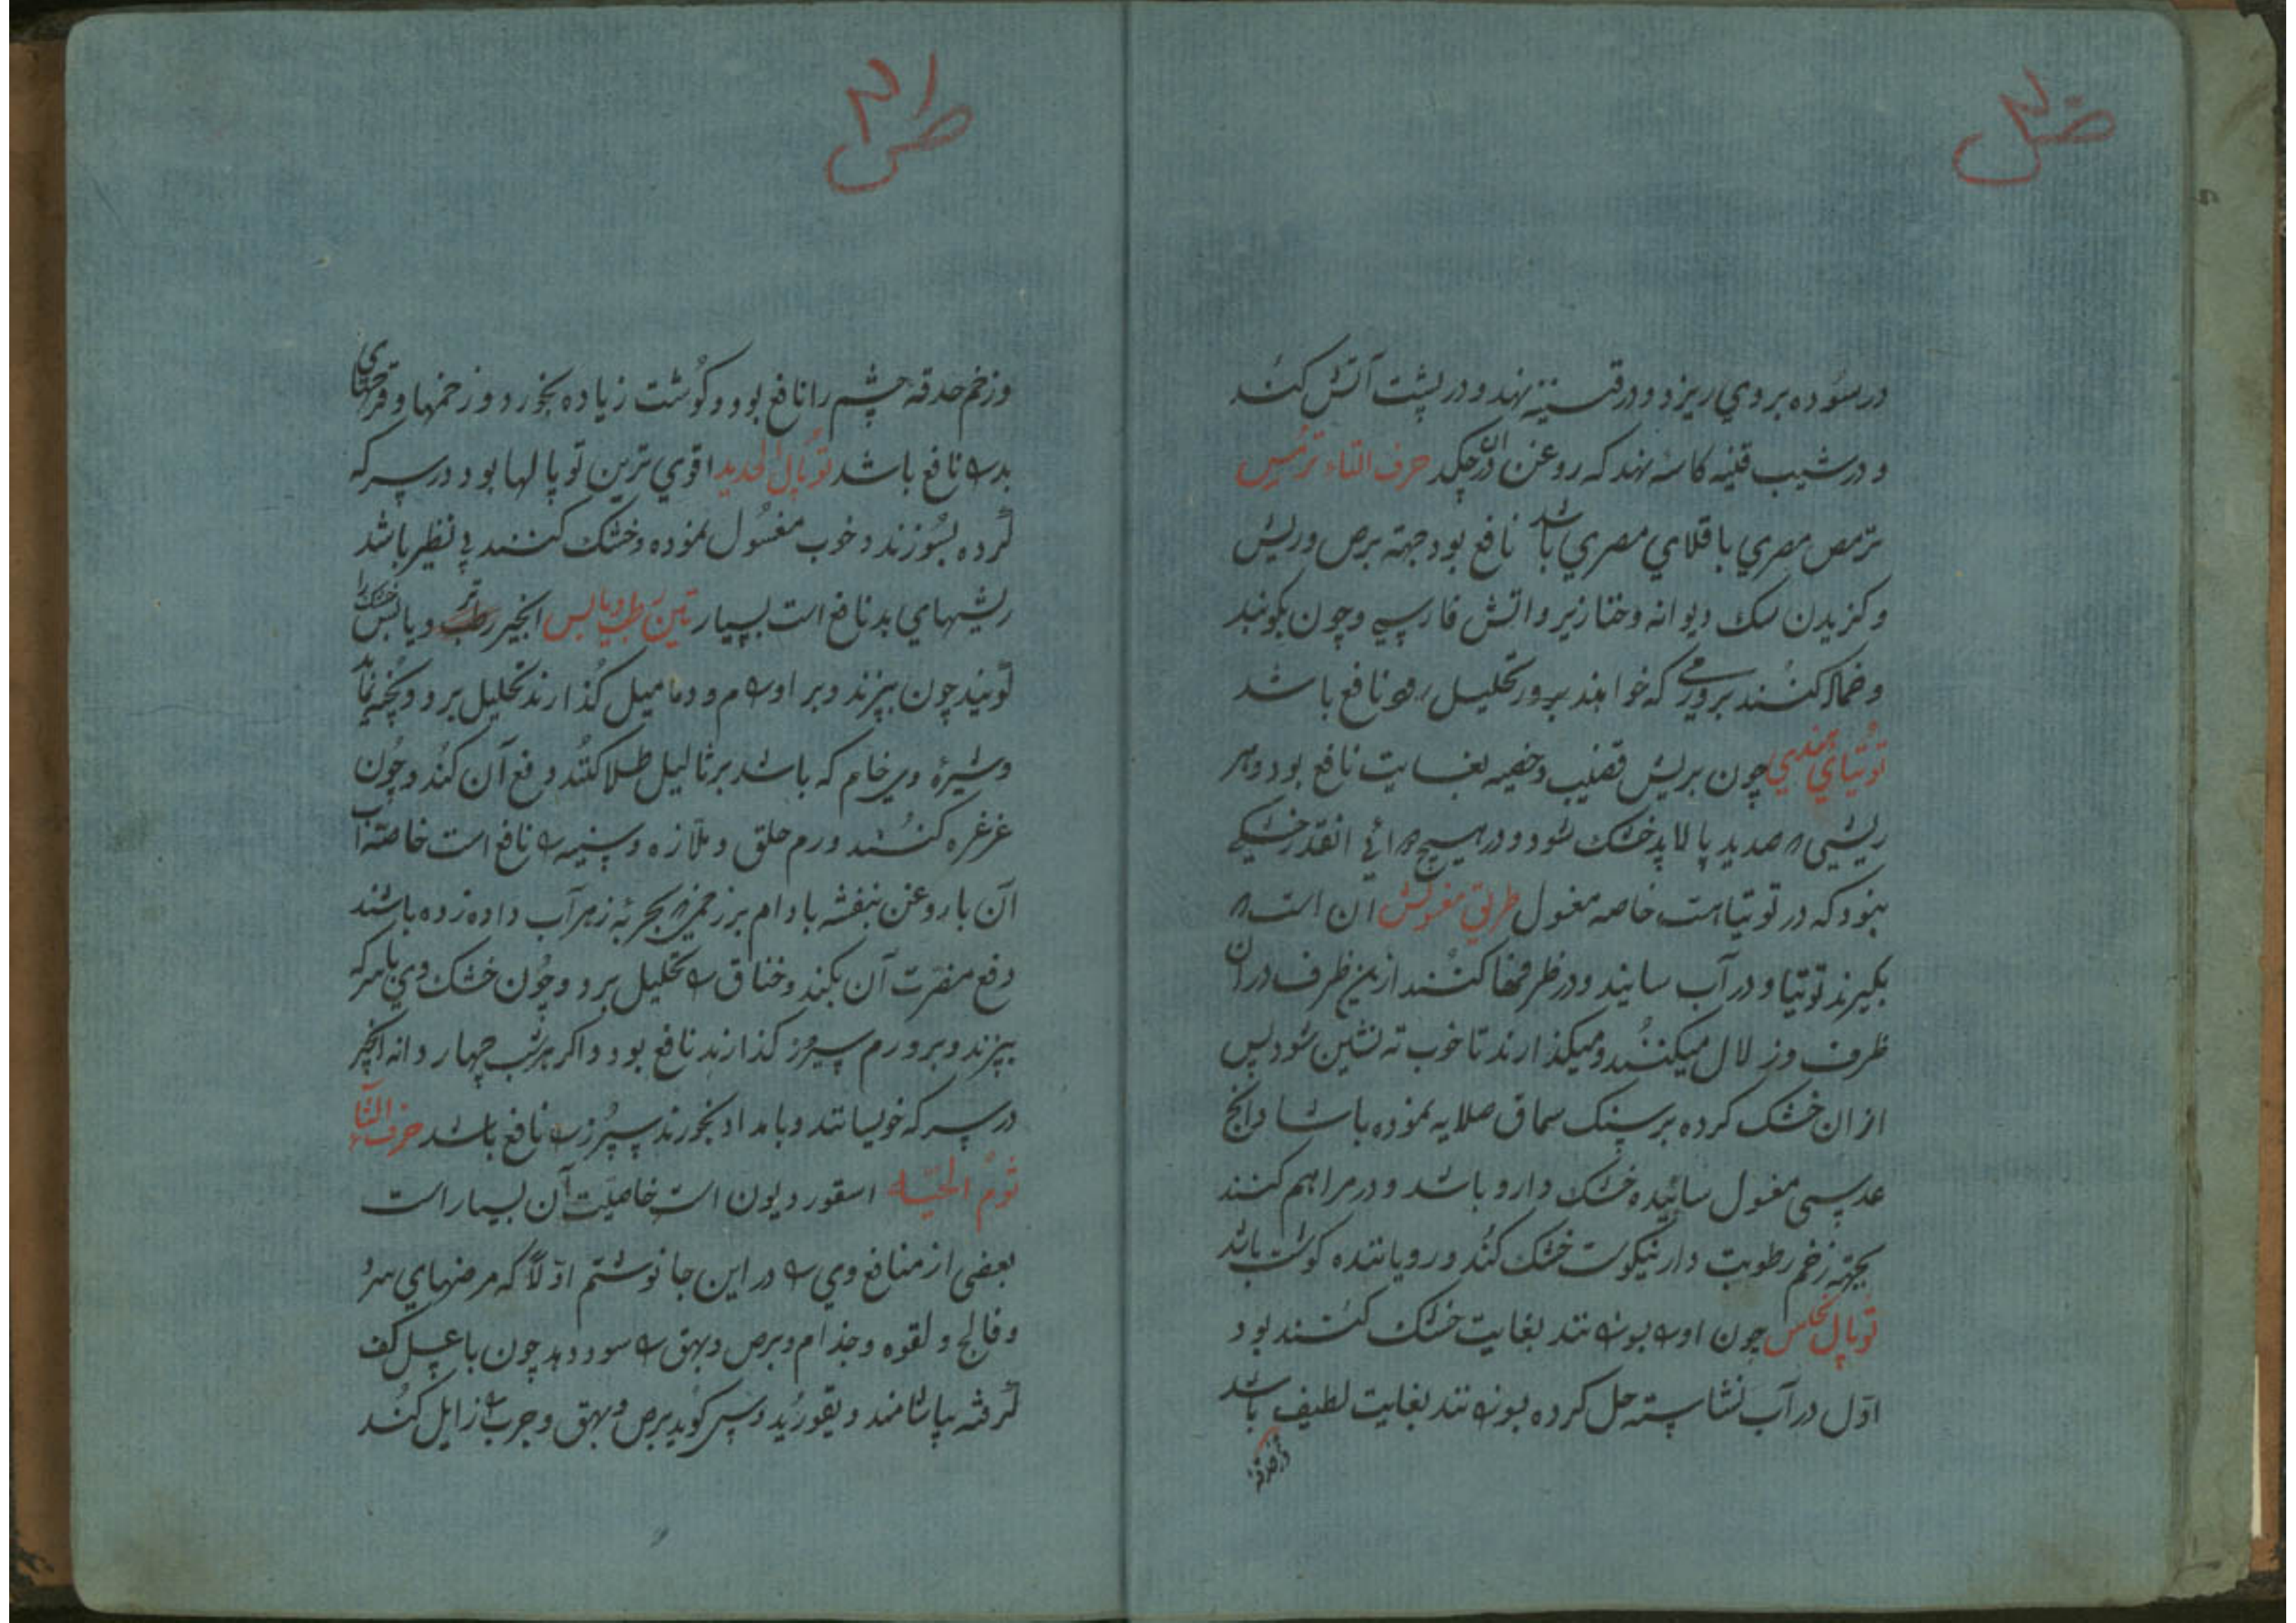 در سوده بر وي ريزد و در قنينه نهند و در پشت آتش كنند
و در شيب قنينه كاسه نهند كه روغن در آن چكد حرف التاء ترمس
ترمص مصري باقلاي مصري باشد نافع بود جهة برص وريش
وكزيدن سك ديوانه وخنازير واتش فارسي وچون بكوبند
وضماد كنند بر ورمي كه خواهند بزور تحليل رود نافع باشد
توتياي هندي چون بريش قضيب وخصيه بغايت نافع بود وهر
ريشي صديد پالايد خشك شود و در هيچ انقدر خشكي
نبود كه در توتياست خاصه مغسول طريق مغسولش آن است
بكيرند توتيا و در آب سايند و در ظرفها كنند ازين ظرف در آن
ظرف وزلال ميكنند وميكذارند تا خوب ته نشين شود پس
از ان خشك كرده بر سنك سماق صلايه نموده
عدسي مغسول سائيده خشك دارو باشد و در مراهم كنند
بجهته زخم رطوبت دار نيكوست خشك كند وروياننده كوشت باشد
توپال نحاس چون او بسوزانند بغايت خشك كننده بود
اوّل در آب نشاسته حل كرده بسوزانند بغايت لطيف باشد
وزخم حدقه
وزخم حدقهٔ چشم را نافع بود و كوشت زياده بخورد و زخمها وقرحهاي
بد را نافع باشد توپال الحديد اقوي ترين توپالها بود در سركه
كرده بسوزند و خوب مغسول نموده وخشك كنند بي نظير باشد
ريشهاي بد نافع است بسيار تين رطب ويابس انجير تر ويابس خشك را
كويند چون بپزند وبر اورام و دماميل كذارند تحليل برد وپخته نمايد
وشيرهٔ وي خام كه باشد بر ثاليل طلا كنند دفع آن كند وچون
غرغره كنند ورم حلق وملازه وسينه را نافع است خاصّه آب
آن با روغن بنفشه بادام بر زخمي بحربهٔ زهر آب داده زده باشند
دفع مضرّت آن بكند وخناق را تحليل برد وچون خشك وي با سركه
بپزند وبر ورم سپرز كذارند نافع بود واكر هر شب چهار دانه انجير
در سركه خويسانند وبامداد بخورند سپرز را نافع باشد حرف الثاء
ثوم الحيّه اسقورديون است خاصيّت آن بسيار است
بعضي از منافع وي را در اين جا نوشتم اوّلاً كه مرضهاي سرد
وفالج ولقوه وجذام وبرص وبهق را سود دهد چون با عسل كف
كرفته بياشامند وديسقوريدوس كويد برص وبهق وجرب را زايل كند